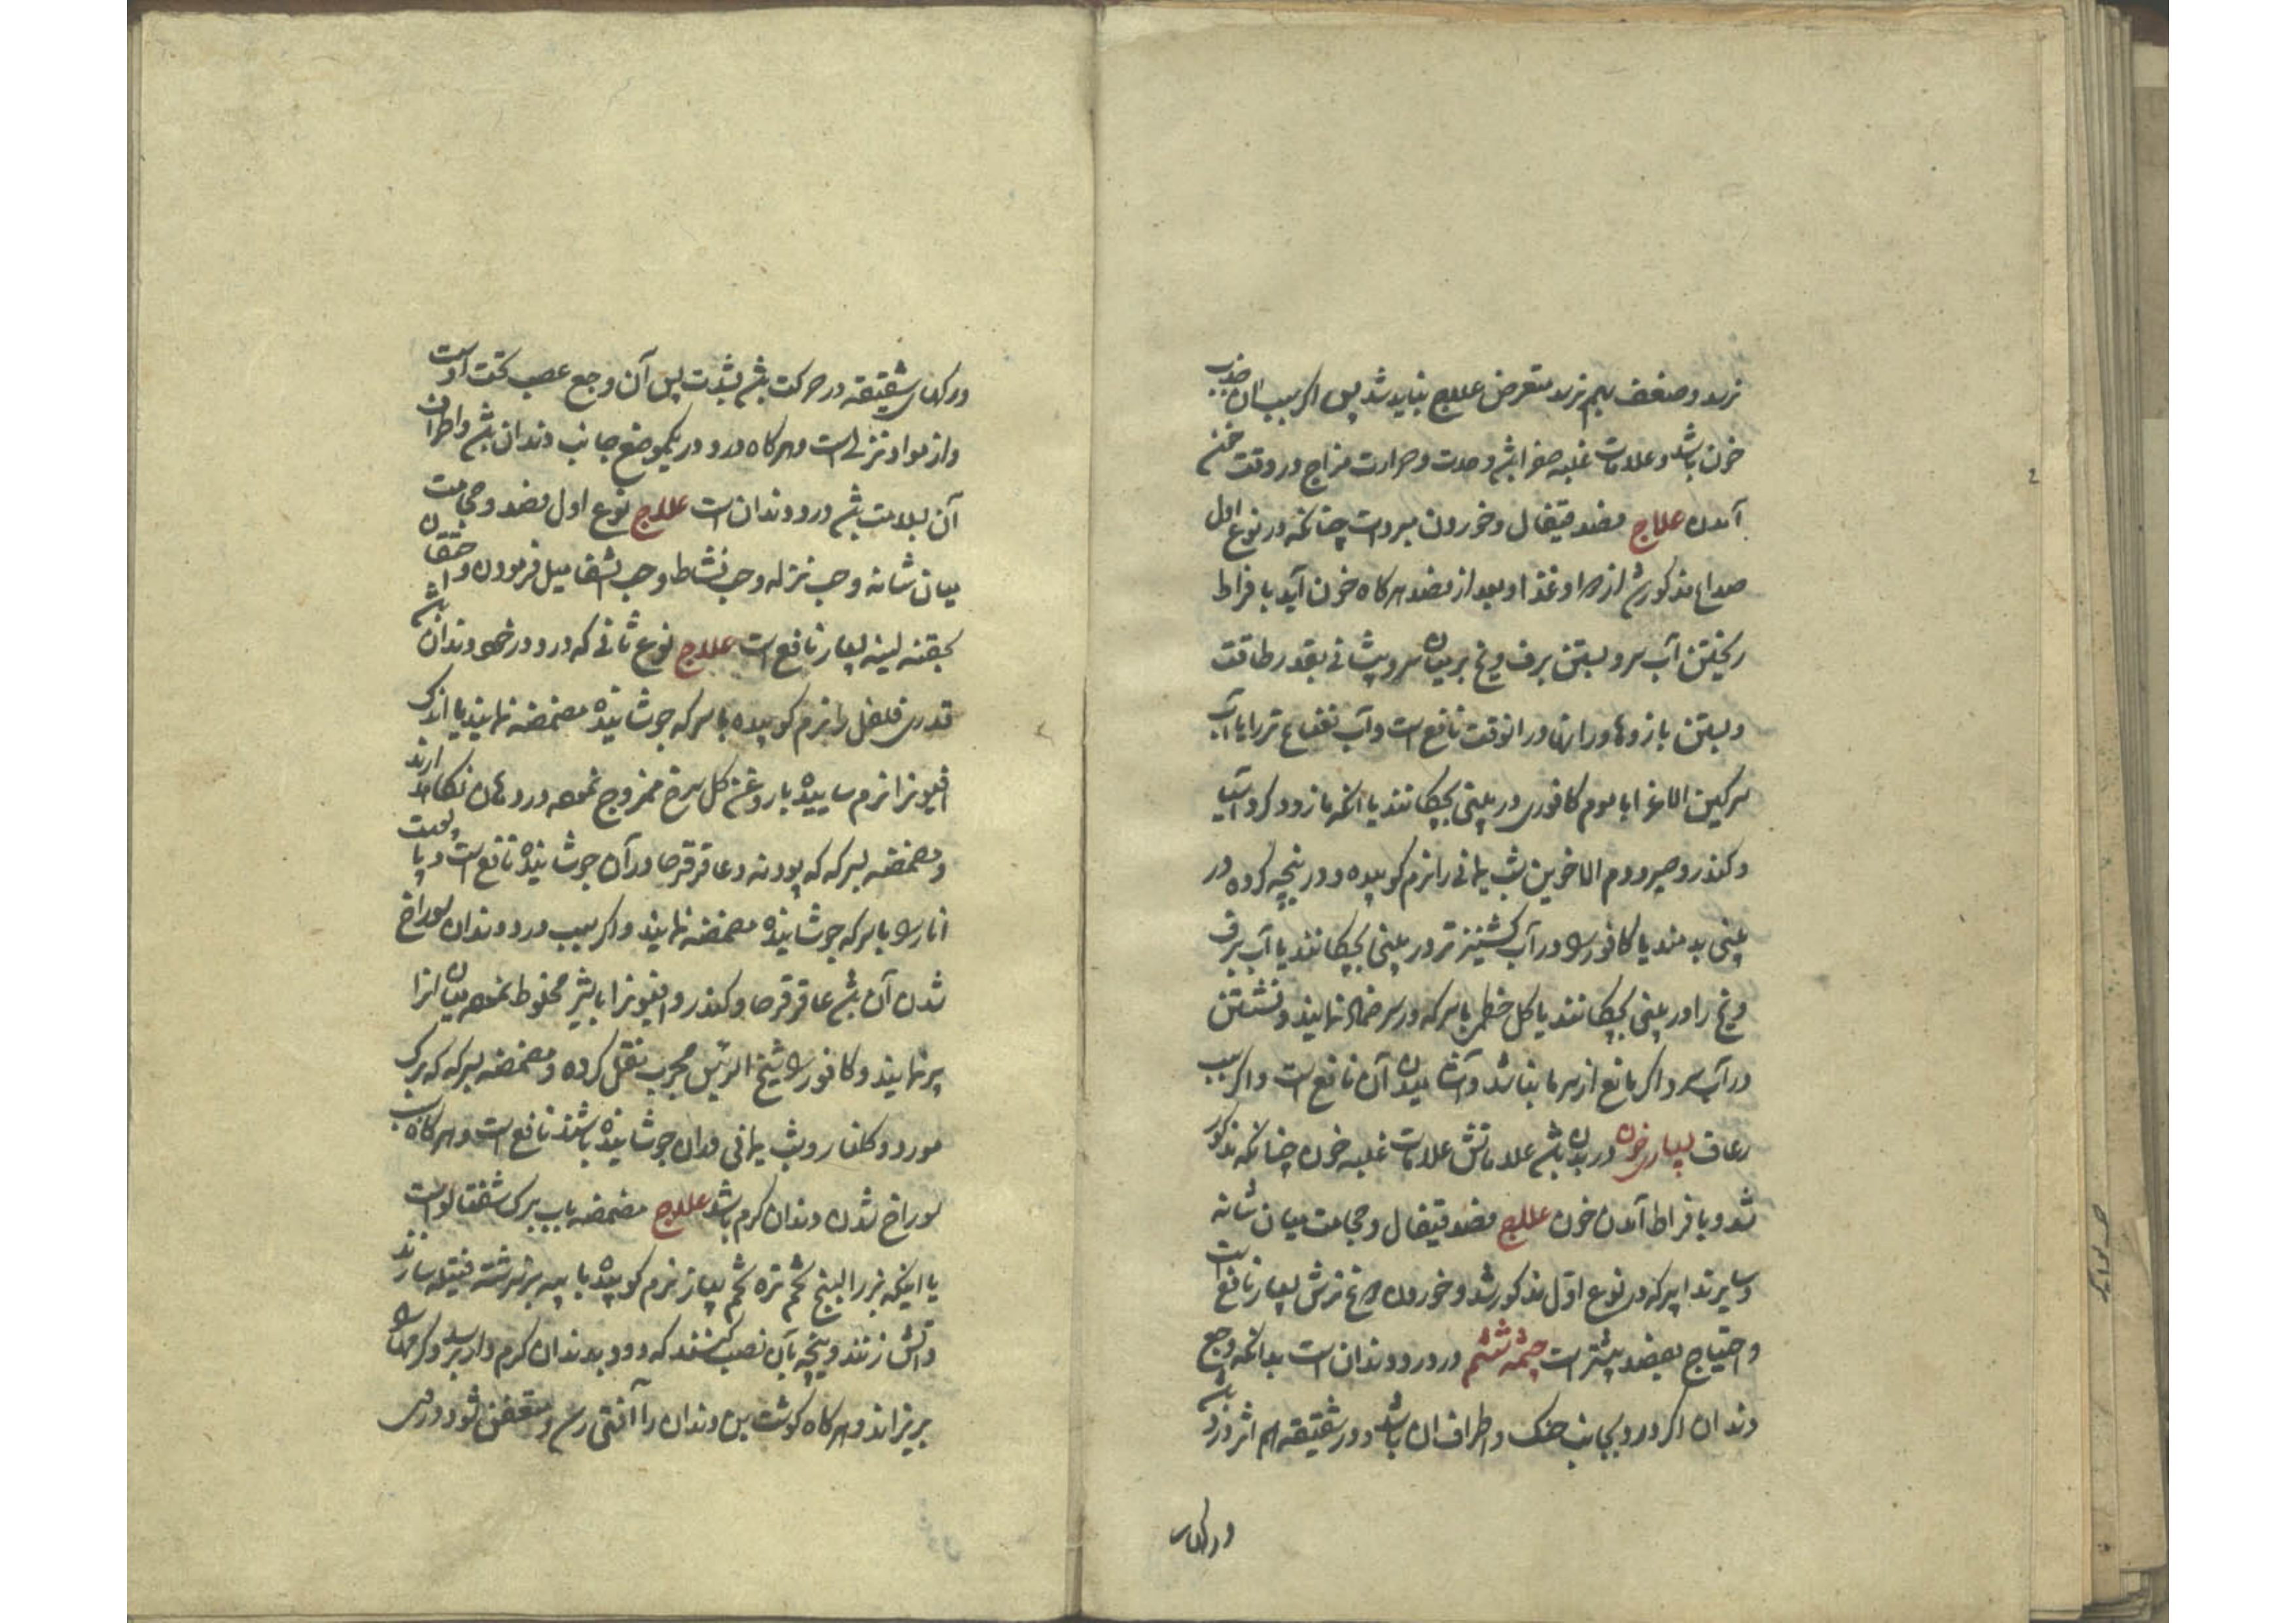 نرسد و ضعف بهم نرسد متعرض علاج نباید شد پس اگر سبب آن جذب
خون باشد و علامات غلبه صفرا باشد و حدت و حرارت مزاج در وقت خون
آمدن علاج فصد قیفال و خوردن مبردات چنانکه در نوع اول
صداع مذکور شد از دوا و غذا و بعد از فصد هرگاه خون آید بافراط
ریختن آب سرد و بستن برف و یخ بر میان سر و پیشانی بقدر طاقت
و بستن بازوها و رانها در انوقت نافع است و آب نعناع تر را با آب
سرکین الاغ را با موم کافوری در بینی بچکانند یا انکه مازو و کرد آسیا
و کندر و صبر و دم الاخوین شب یمانی را نرم کوبیده و در پنجه کرده در
بینی بدمند یا کافور را در آب کشنیز تر در بینی بچکانند یا آب برف
و یخ را در بینی بچکانند یا کل خطمی با سرکه در سر ضماد نمایند و نشستن
در آب سرد اگر مانع از سرما نباشد و آشامیدن آن نافع است و اگر سبب
رعاف بسیاری خون در بدن باشد علاماتش علامات غلبه خون چنانکه مذکور
شد و بافراط آمدن خون علاج فصد قیفال و حجامت میان شانه
و سایر تدابیر که در نوع اول مذکور شد و خوردن مرغ ترش بسیار نافع است
و احتیاج بفصد بیشتر است چشمه ششم در درد دندان است بدانکه وجع
دندان اگر درد بجانب حنک و اطراف ان باشد و در شقیقه هم اثر درد باشد
و رکهای
و رکهای شقیقه در حرکت باشد بشدت پس آن وجع عصب تحت اوست
و از مواد نزلی است و هرگاه درد در یکموضع جانب دندان باشد و اطراف
آن بسلامت باشد درد دندان است علاج نوع اول فصد و حجامت
میان شانه و حب نزله و حب نشاط و حب شفا میل فرمودن و حقنان
بحقنه لینه بسیار نافع است علاج نوع ثانی که درد در خود دندان باشد
قدری فلفل را نرم کوبیده با سرکه جوشانیده مضمضه نمایند یا اندک
افیونرا نرم ساییده با روغن کل سرخ ممزوج نموده در دهان نکاهدارند
و مضمضه بسرکه که پودنه و عاقرقرحا در آن جوشانیده نافع است و یا پوست
انار را با سرکه جوشانیده مضمضه نمایند و اگر سبب درد دندان سوراخ
شدن آن باشد عاقرقرحا و کندر و افیونرا با شیر مخلوط نموده میان انرا
پر نمایند و کافور را شیخ الرئیس مجرب نقل کرده و مضمضه بسرکه که برک
مورد و کلنار و شب یمانی در ان جوشانیده باشند نافع است و هرگاه سبب
سوراخ شدن دندان کرم باشد علاج مضمضه بآب برک شفتالو است
یا اینکه بزر البنج تخم تره تخم پیاز نرم کوبیده با پیه بز سرشته فتیله سازند
و آتش زنند و پنجه بآن نصب کنند که دود بدندان کرم دار برسد و کرمها را
بریزاند و هرگاه کوشت بن دندان را آفتی رسد و متعفن شود در وی